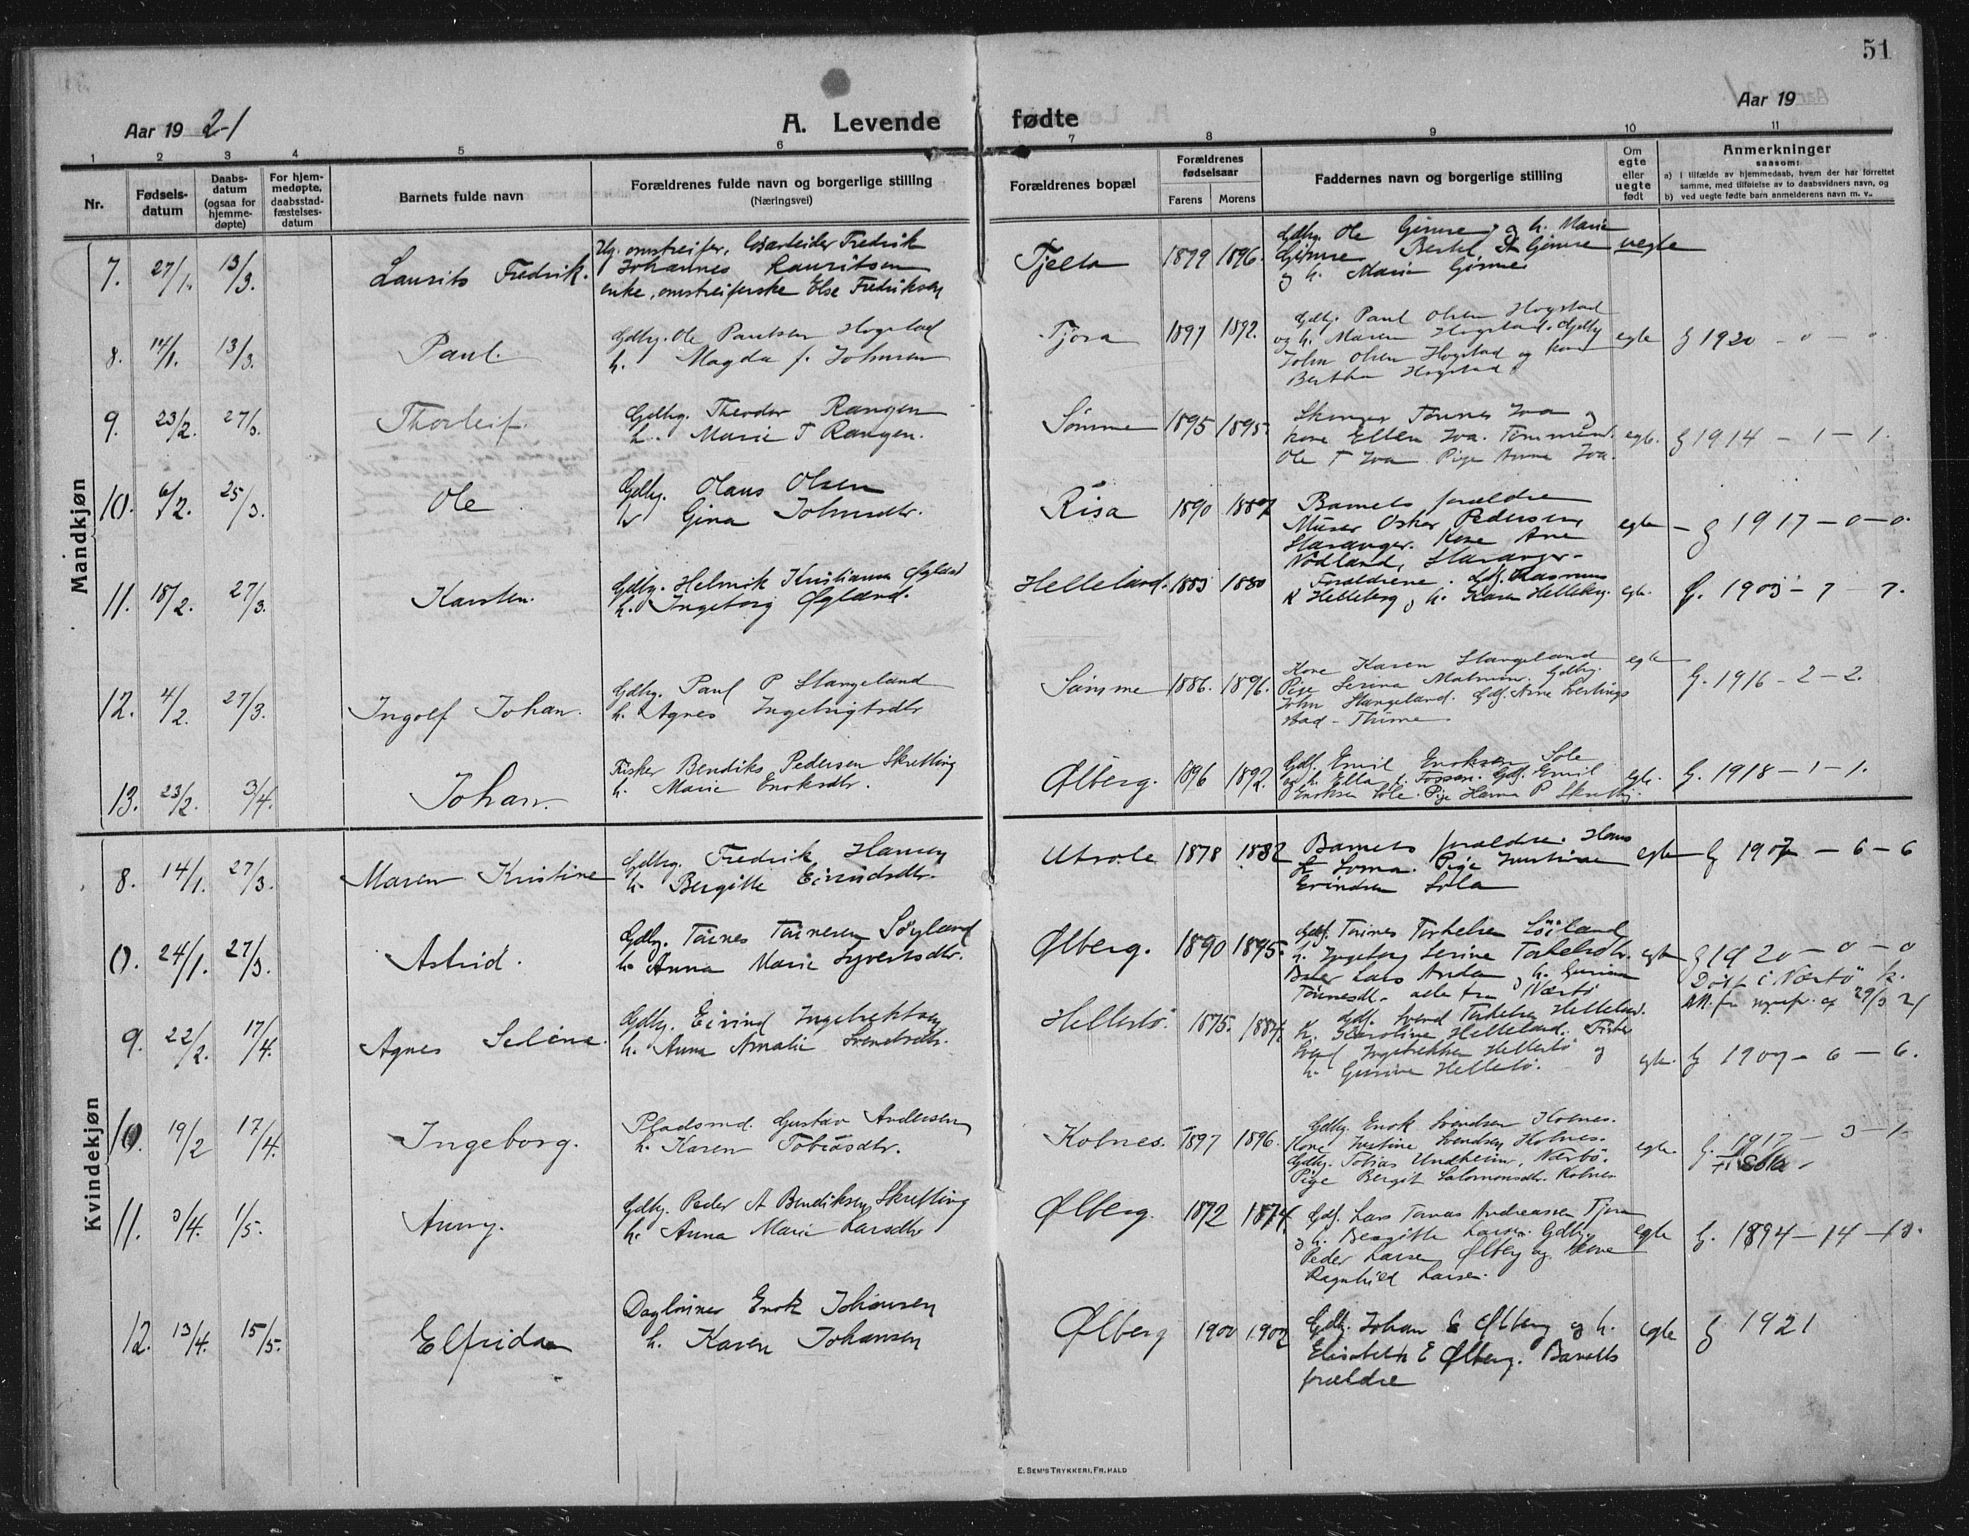 51
Aar 19 21
A. Levende fødte
Aar 19
1 2 3 4 5 6 7 8 9 10 11
Nr.
Fødsels-
datum
Daabs-
datum
(ogsaa for
hjemme-
døpte)
For hjem-
medøpte,
daabsstad-
fæstelses-
datum
Barnets fulde navn
Forældrenes fulde navn og borgerlige stilling
(Næringsvei)
Forældrenes bopæl
Forældrenes
fødselsaar
Farens Morens
Faddernes navn og borgerlige stilling
Om
egte
eller
uegte
født
Anmerkninger
saasom:
a) I tilfælde av hjemmedaab, hvem der har forrettet
samme, med tilføielse av to daabsvidners navn, og
b) ved uegte fødte barn anmelderens navn m. v.
Mandkjøn
7. 27/1. 13/3. Laurits Fredrik.
Ug. omstreifer, Løsarbeider Fredrik
Johannes Lauritsen
enke, omstreiferske Else Fredriksen
Tjelta 1879 1896.
Gdbg. Ole Gimre og h. Marie
Gimre Bertel Gimre
og h. Marie Gimre
uegte
8. 14/1. 13/3. Paul.
Gdbg. Ole Paulsen Hogstad
h. Magda f. Johnsen
Tjora 1897 1892.
Gdbg. Paul Olsen Hogstad
og h. Maren Hogstad. Gdbg
John Olsen Hogstad og kone
Bertha Hogstad
egte g 1920 - 0 - 0.
9. 23/2. 27/3. Thorleif.
Gdbg. Theodor Rangen
h. Marie T Rangen.
Sømme 1895 1895.
Tønnes Joa og
kone Ellen Joa. Tømmermd.
Ole T Joa Pige Anna Joa.
egte. g 1914 - 1 - 1.
10. 6/2. 25/3. Ole
Gdbg. Olaus Olsen
h Gina Johnsdtr.
Risa 1890 1887
Barnets forældre
Murer Oskar Pedersen
Stavanger. Kone Ane
Nødland, Stavanger-
egte - g 1917 - 0 - 0.
11. 18/2. 27/3. Karsten.
Gdbg. Helmik Kristiansen Øgland
h. Ingeborg Øgland.
Helleland. 1883 1880
Forældrene. Gdf. Rasmus
K Helleberg og h. Karen Helleberg.
egte. G. 1903 - 7 - 7.
12. 4/2. 27/3. Ingolf Johan.
Gdbg. Paul P Stangeland
h. Agnes Ingebrigtsdtr
Sømme 1886. 1896.
Kone Karen Stangeland
Pige Serina Malmin. Gdbg.
John Stangeland. Gdf. Arne
stad - Thime
egte G. 1916 - 2 - 2.
13. 23/2. 3/4. Johan.
Fisker Bendiks Pedersen Skretting
h. Marie Enoksdtr.
Ølberg. 1896 1892.
Gdbg. Emil Enoksen Sole
og h. Ella Gdf. Emil
Enoksen Sole. Pige Hanna P Skretting.
egte. G. 1918 - 1 - 1.
Kvindekjøn
8. 14/1. 27/3. Maren Kristine
Gdbg. Fredrik Hansen
h. Bergitte Eivindsdtr.
Utsole 1878 1882
Barnets forældre. Hans
Soma. Pige Justine
Eivindsen Sola
egte G 1907 - 6 - 6
0. 24/1. 27/3. Astrid.
Gdbg. Tønes Tønesen Søyland
h. Anna Marie Syvertsdtr.
Ølberg. 1890 1895.
Gdf. Tønnes Torkelsen Søiland
h. Ingeborg Serine Torkelsdtr.
Lars og h. Gurine
Tønnesdtr. alle fra Nærbø
egte g 1920 - 0 - 0
Døbt i Nærbø k.
Att. fra sognepr. af 29/3 21
9. 22/2. 17/4. Agnes Seline.
Gdbg. Eivind Ingebretsen
h. Anna Amalie Svendsdtr.
Hellestø. 1875. 1884.
Gdf. Svend Torkelsen Helleland.
h. Karoline Helleland. Fisker
Svend Ingebretsen Hellestø og
h. Gurine Hellestø.
egte. G 1907 - 6 - 6.
10. 19/2 17/4. Ingeborg.
Pladsmd. Gustav Andersen
h. Karen Tobiasdtr.
Kolnes. 1897 1896.
Gdbg. Enok Svendsen Kolnes.
Kone Justine Svendsen Kolnes.
Gdbg. Tobias Undheim, Nærbø.
Pige Bergit Salomonsdtr. Kolnes
egte. G. 1917 - 3 - 1.
11. 3/4. 1/5. Anny.
Gdbg. Peder A Bendiksen Skretting
h. Anna Marie Larsdtr
Ølberg. 1872 1874.
Gdf. Lars Tomas Andreassen Tjora
og h. Bergitte Larsen. Gdbg.
Peder Larsen Ølberg og kone
Ragnhild Larsen.
egte G. 1894 - 14 - 10.
12. 13/4. 15/5. Elfrida
Daglønner Enok Johansen
h. Karen Johansen
Ølberg 1900 1902
Gdbg. Johan E Ølberg og h.
Elisabeth E Ølberg. Barnets
forældre
egte g 1921
E. SEM'S TRYKKERI, FR.HALD